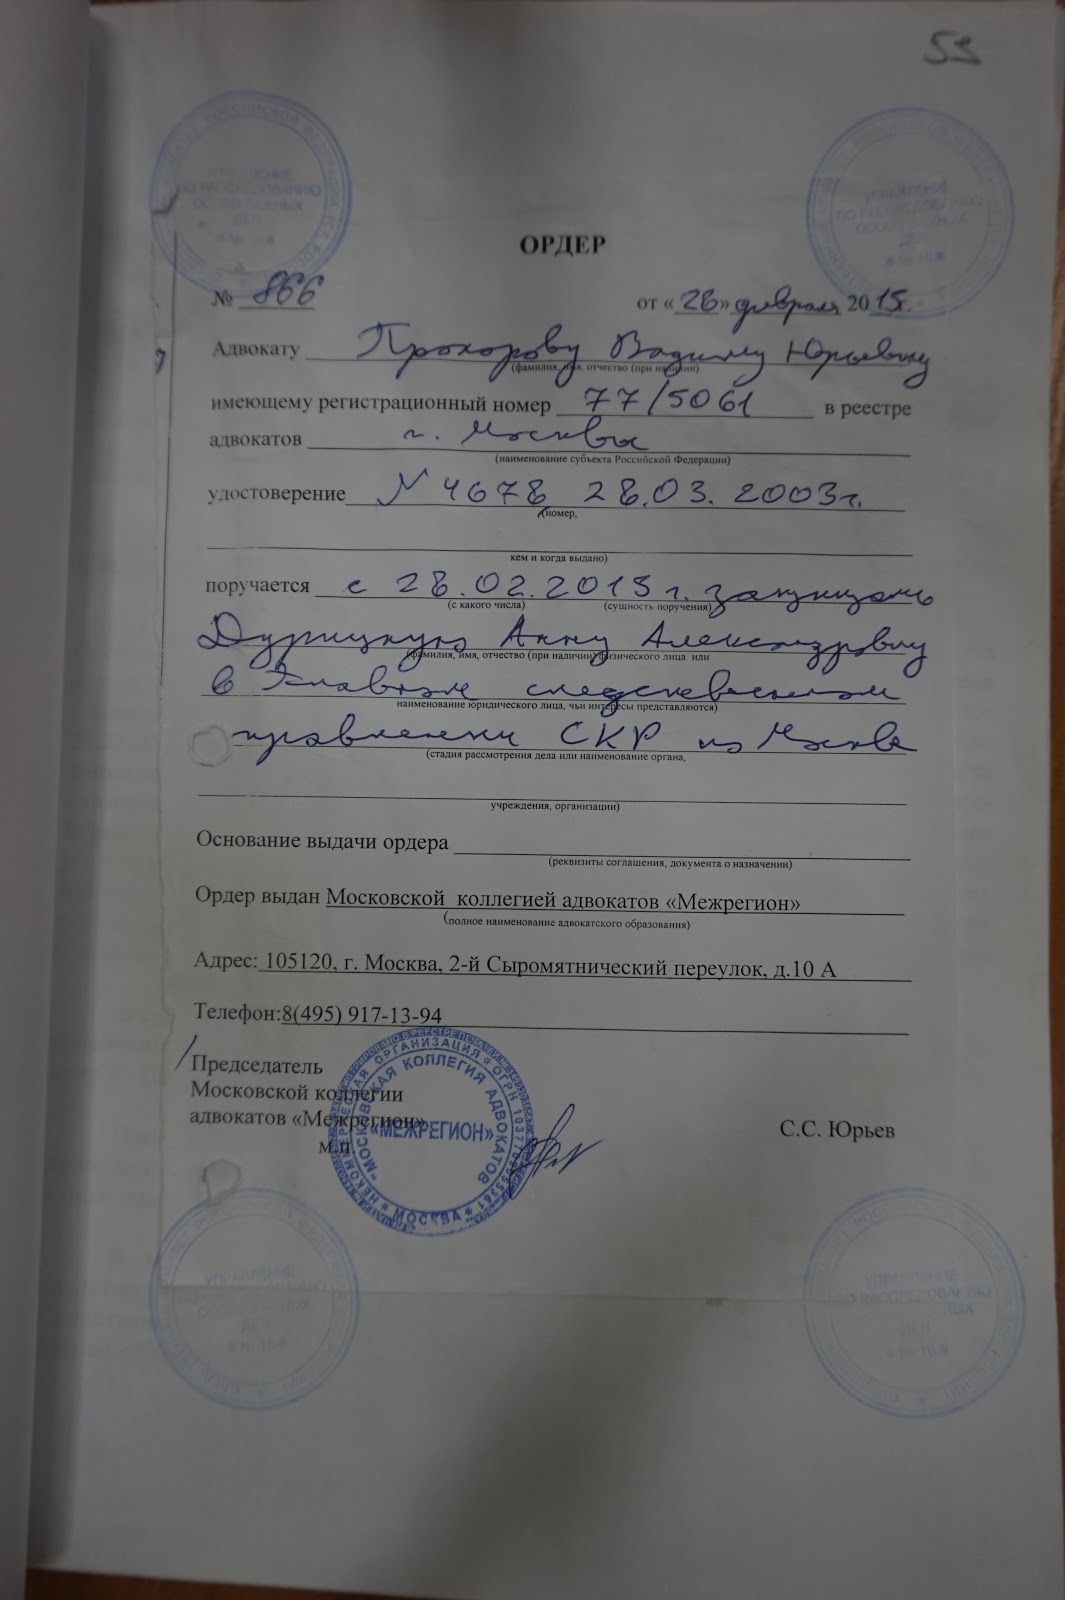 59
УПРАВЛЕНИЕ
ПО РАССЛЕДОВАНИЮ
ДЕЛ
УПРАВЛЕНИЕ
ПО РАССЛЕДОВАНИЮ
ДЕЛ
ОРДЕР
№ 866 от «28» февраля 2015г.
Адвокату Прохорову Вадиму Юрьевичу
(фамилия, имя, отчество (при наличии)
имеющему регистрационный номер 77/5061 в реестре
адвокатов г. Москвы
(наименование субъекта Российской Федерации)
удостоверение N 4678 28.03. 2003г.
(номер,
кем и когда выдано)
поручается с 28.02.2015 г. защищать
(с какого числа) (сущность поручения)
Дурицкую Анну Александровну
(фамилия, имя, отчество (при наличии) физического лица или
в Главном следственном
наименование юридического лица, чьи интересы представляются)
управлении СКР по Москве
(стадия рассмотрения дела или наименование органа,
учреждения, организации)
Основание выдачи ордера
(реквизиты соглашения, документа о назначении)
Ордер выдан Московской коллегией адвокатов «Межрегион»
(полное наименование адвокатского образования)
Адрес: 105120, г. Москва, 2-й Сыромятнический переулок, д.10 А
Телефон:8(495) 917-13-94
Председатель
Московской коллегии
адвокатов «Межрегион»
м.п.
С.С. Юрьев
НЕКОММЕРЧЕСКАЯ ОРГАНИЗАЦИЯ * ОГРН
"МОСКОВСКАЯ КОЛЛЕГИЯ АДВОКАТОВ
«МЕЖРЕГИОН»
* МОСКВА *
УПРАВЛЕНИЕ
ДЕЛ
УПРАВЛЕНИЕ
ПО РАССЛЕДОВАНИЮ
ДЕЛ